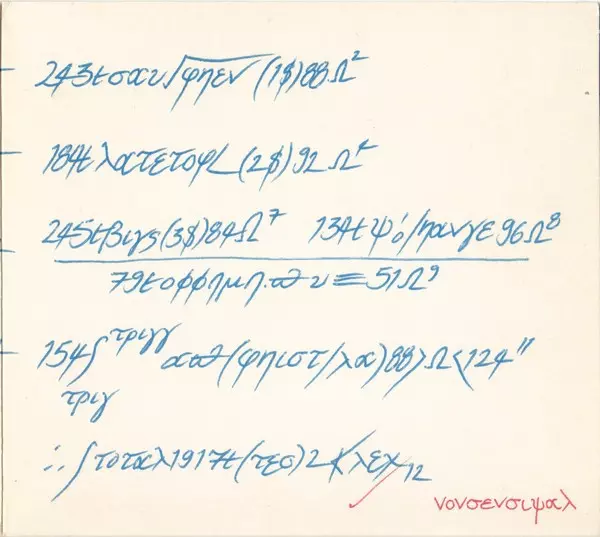 243tσαυ√φηεν (1$)88Ω²
184tλατετοφ/ (2$)92 Ω⁴
245tβιγς(3$)84Ω⁷ 134tψό/πανγε96Ω⁸
79tοφφημη.ϖυ≡51Ω⁹
154∫τριγγ αϖ(φηιστ/λα)88〉Ω〈124"
τριγ
∴∫τοταλ1917t(τεσ)2 λεχ12
νονσενσιψαλ